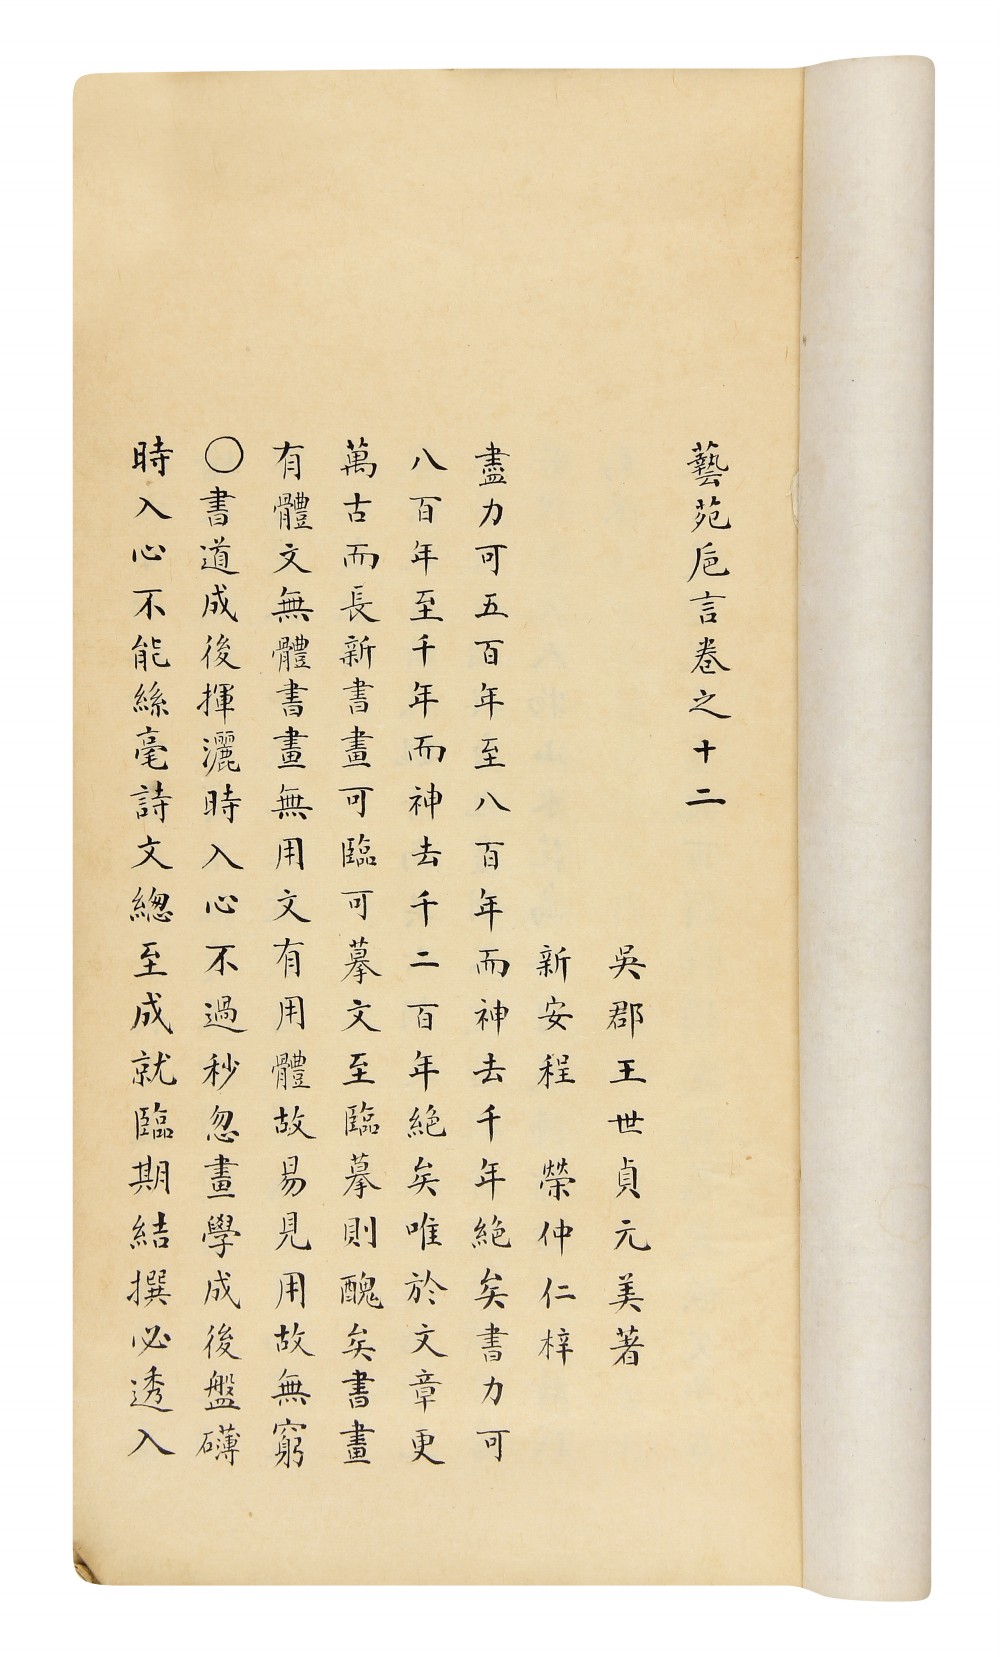 藝苑巵言卷之十二
吳郡王世貞元美著
新安程 榮仲仁梓
盡力可五百年至八百年而神去千年絶矣書力可
八百年至千年而神去千二百年絶矣唯於文章更
萬古而長新書畫可臨可摹文至臨摹則醜矣書畫
有體文無體書畫無用文有用體故易見用故無窮
○書道成後揮灑時入心不過秒忽畫學成後盤礴
時入心不能絲毫詩文緫至成就臨期結撰必透入